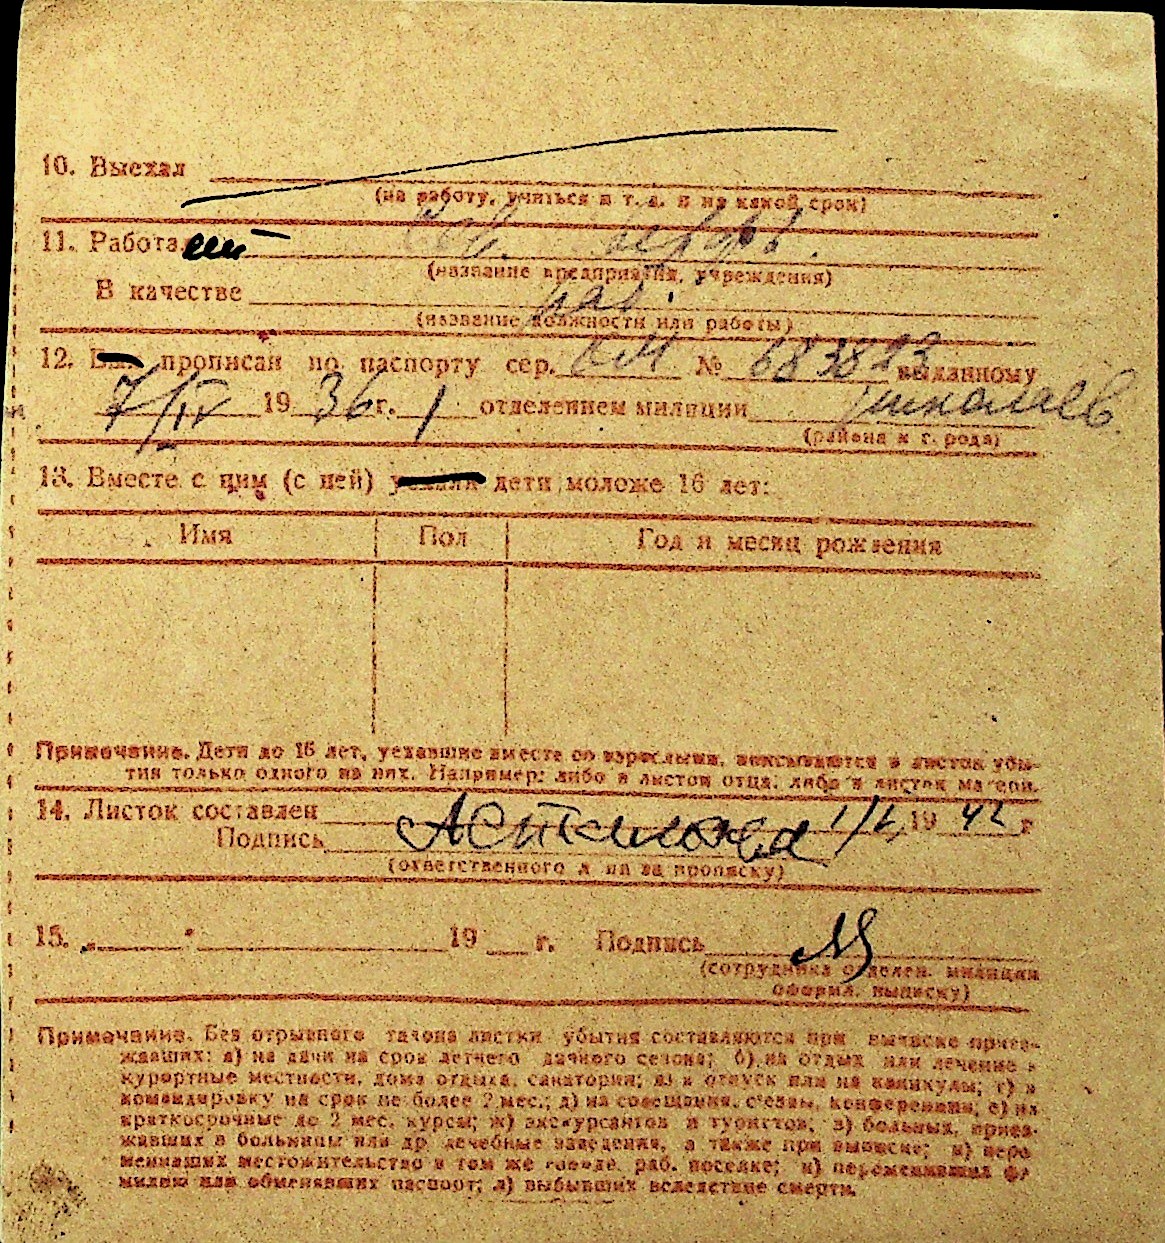 10. Выехал
(на работу, учиться и т. д. и на какой срок)
11. Работает
(название предприятия, учреждения)
В качестве раб.
(название должности или работы)
12. прописан по паспорту сер. № 683883 выданному
7/IV 1936 г. 1 отделением милиции Николаев.
(района и г. рода)
13. Вместе с ним (с ней) дети моложе 16 лет:
Имя Пол Год и месяц рождения
Примечание. Дети до 16 лет, уехавшие вместе со взрослыми, вписываются в листок убы-
тия только одного из них. Например: либо в листок отца, либо в листок матери.
14. Листок составлен 1942 г
Подпись
(ответственного л ца за прописку)
15. „ " 19 г. Подпись
(сотрудника отделен. милиции
оформл. выписку)
Примечание. Без отрывного талона листки убытия составляются при выписке приез-
жавших: а) на дачи на срок летнего дачного сезона; б) на отдых или лечение в
курортные местности, дома отдыха, санатории; в) в отпуск или на каникулы; г) в
командировку на срок не более 2 мес.; д) на совещания, с'езды, конференции; е) на
краткосрочные до 2 мес. курсы; ж) экскурсантов и туристов; з) больных, приез-
жавших в больницы или др лечебные заведения, а также при выписке; и) пере
менивших местожительство в том же городе, раб. поселке; к) переменивших фа
милию или обменявших паспорт; л) выбывших вследствие смерти.